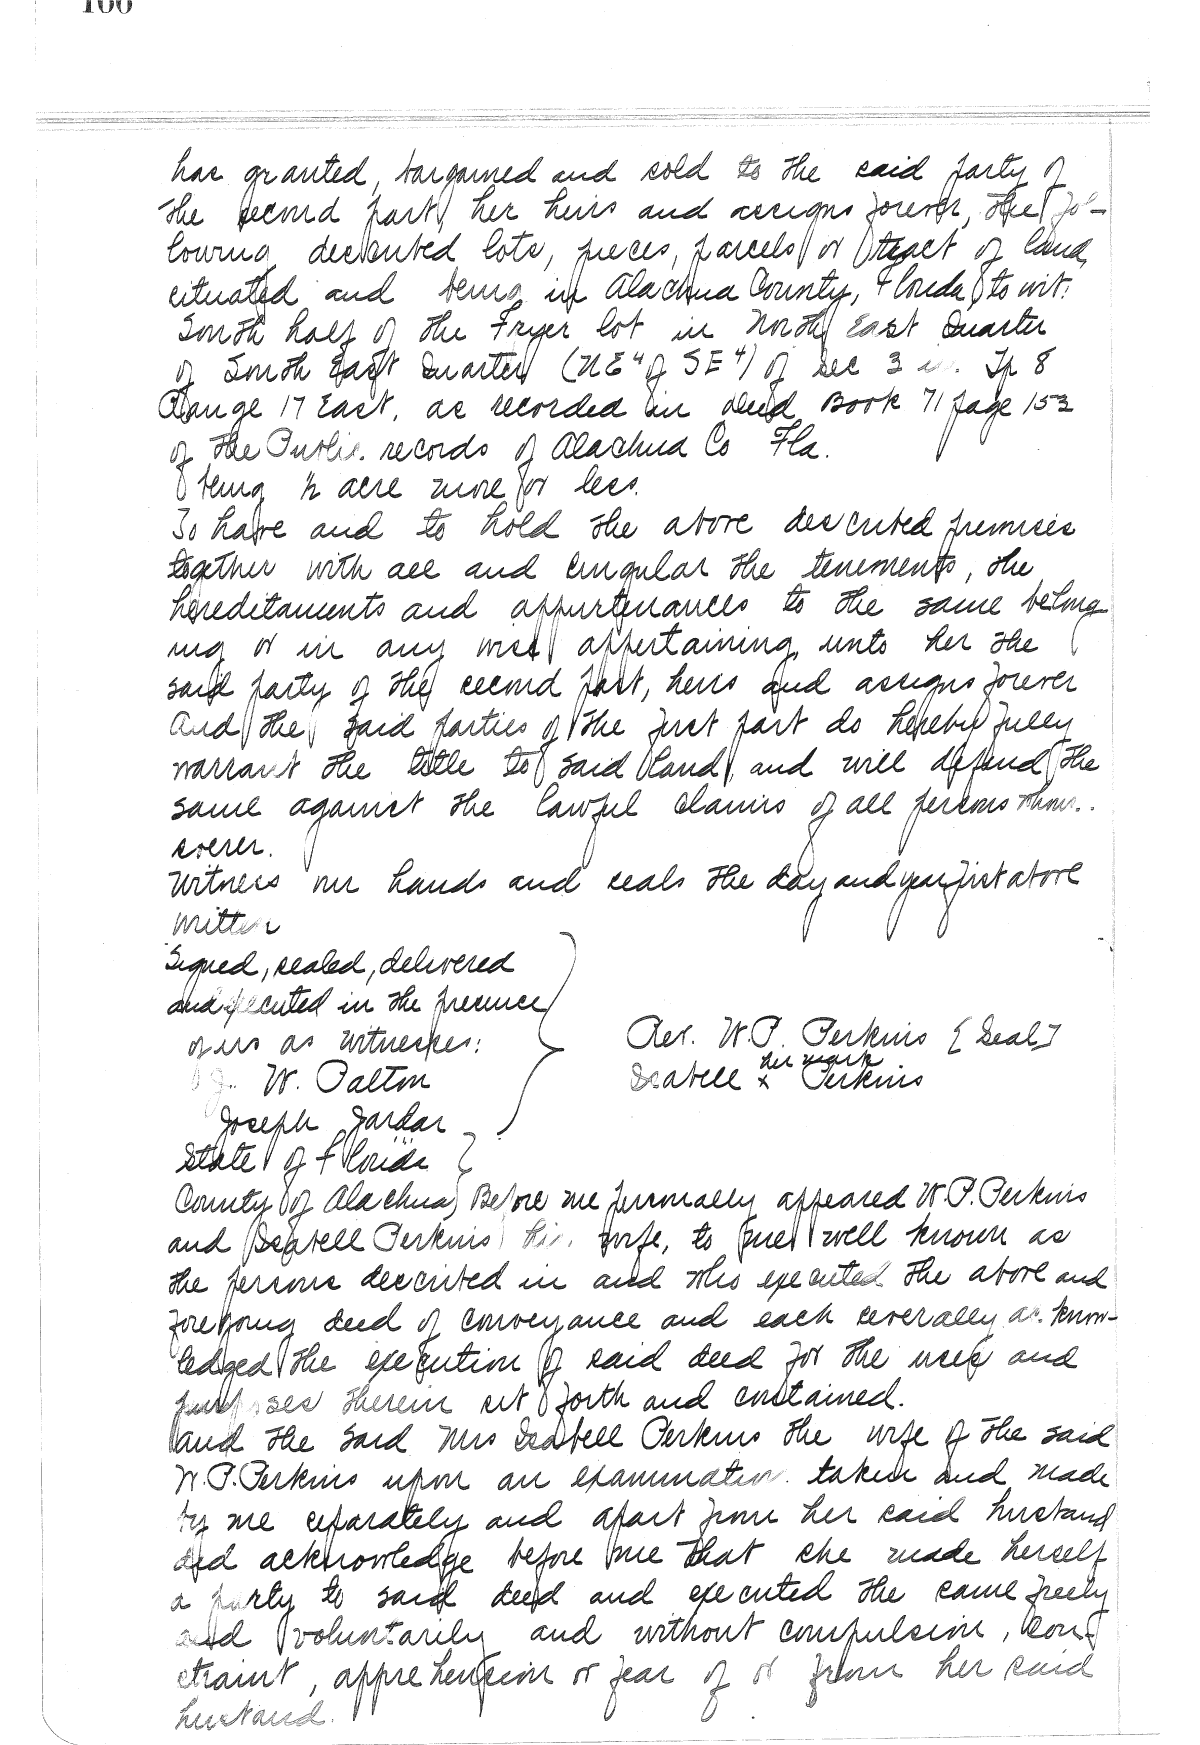 has granted, bargained and sold to the said party of
the second part, her heirs and assigns forever, the fol-
lowing described lots, pieces, parcels or tract of land,
situated and being in Alachua County, Florida, to wit:
South half of the Fryer lot in North East Quarter
of South East Quarter (NE 4 of SE 4) of Sec 3 in Tp 8
Range 17 East, as recorded in deed Book 71 page 153
of the Public records of Alachua Co Fla.
being ½ acre more or less.
To have and to hold the above described premises
together with all and singular the tenements, the
hereditaments and appurtenances to the same belong
ing or in any wise appertaining unto her the
said party of the second part, heirs and assigns forever
And the said parties of the first part do hereby fully
warrant the title to said land, and will defend the
same against the lawful claims of all persons whom..
soever.
Witness our hands and seals the day and year first above
written
Signed, sealed, delivered
and executed in the presence
of us as witnesses:
W. Dalton
Joseph
Rev. W.P. Perkins [Seal]
her mark
Isabell x Perkins
State of Florida
County of Alachua} Before me personally appeared W.P. Perkins
and Isabell Perkins his wife, to me well known as
the persons described in and who executed the above and
foregoing deed of conveyance and each severally acknow-
ledged the execution of said deed for the uses and
purposes therein set forth and contained.
and the said Mrs Isabell Perkins the wife of the said
W.P. Perkins upon an examination taken and made
by me separately and apart from her said husband
did acknowledge before me that she made herself
a party to said deed and executed the same freely
and voluntarily and without compulsion, con-
straint, apprehension or fear of or from her said
husband.